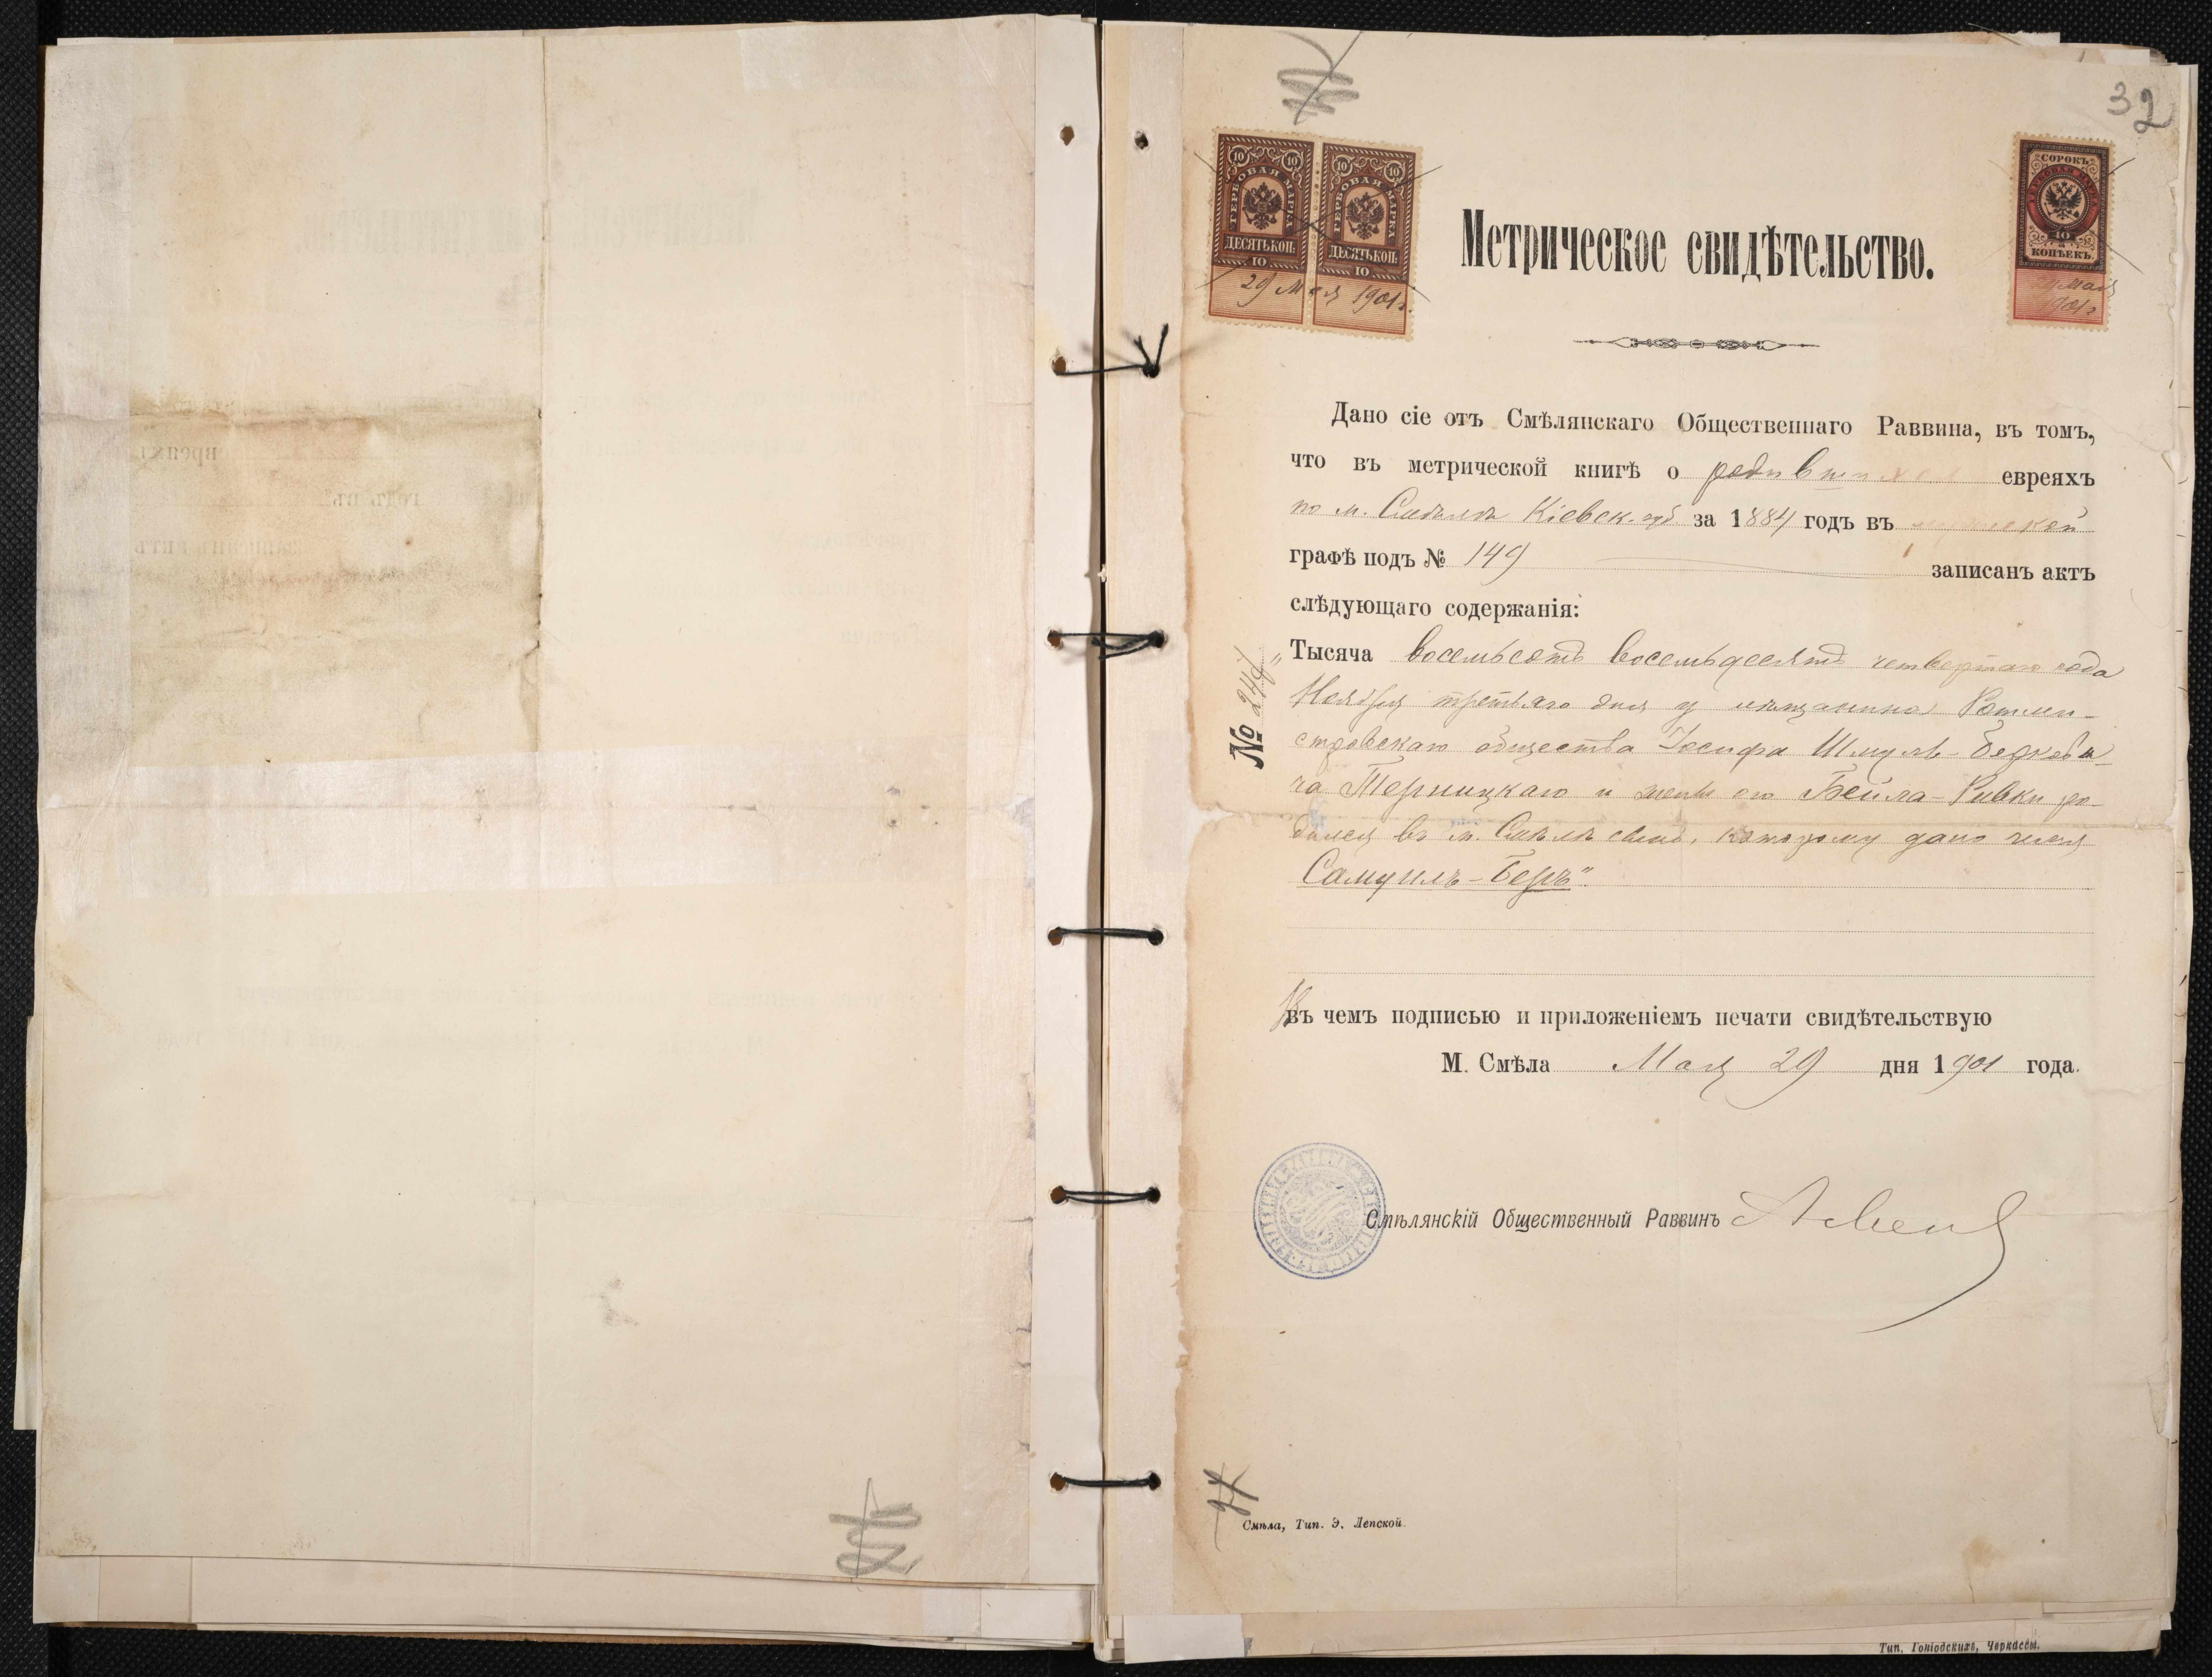 32
10 10
ГЕРБОВАЯ МАРКА
ДЕСЯТЬ КОП.
10
10 10
ГЕРБОВАЯ МАРКА
ДЕСЯТЬ КОП.
10
29 Мая 1901 г.
СОРОКЪ
40
КОПѢЕКЪ.
29 Мая
1901 г
Метрическое свидѣтельство.
Дано сіе отъ Смѣлянскаго Общественнаго Раввина, въ томъ,
что въ метрической книгѣ о родившихся евреяхъ
по м. Смѣла Кіевск. губ. за 1884 годъ въ мужской
графѣ подъ № 149 записанъ актъ
слѣдующаго содержанія:
Тысяча восемьсотъ восемьдесятъ четвертаго года
Ноября третьяго дня у мѣщанина Ротми-
стровскаго общества Іосифа Шмуль-Беркови-
ча Терницкаго и жены его Бейла-Ривки ро-
дился въ м. Смѣлѣ сынъ, которому дано имя
Самуилъ-Беръ".
№
Въ чемъ подписью и приложеніемъ печати свидѣтельствую
М. Смѣла Мая 29 дня 1901 года.
Смѣлянскій Общественный Раввинъ
Смѣла, Тип. Э. Лепской.
Тип. Гоніодскихъ, Черкассы.